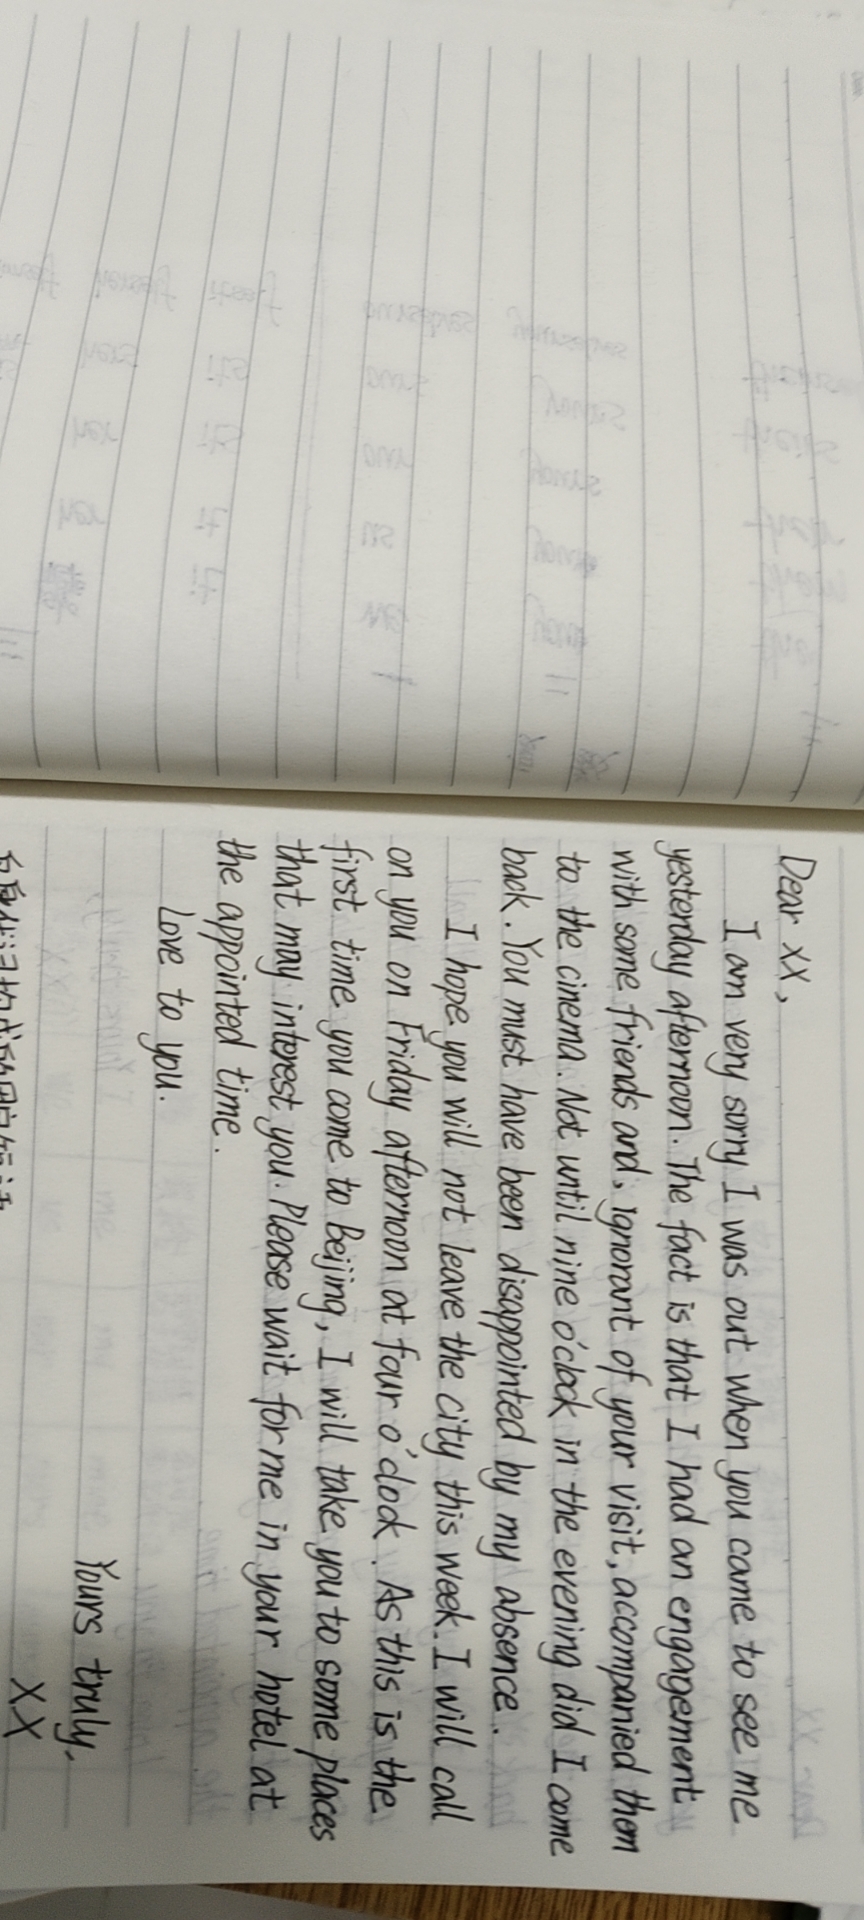 Dear XX,
I am very sorry I was out when you came to see me
yesterday afternoon. The fact is that I had an engagement
with some friends and, ignorant of your visit, accompanied them
to the cinema. Not until nine o'clock in the evening did I come
back. You must have been disappointed by my absence.
I hope you will not leave the city this week. I will call
on you on Friday afternoon at four o'clock. As this is the
first time you come to Beijing, I will take you to some places
that may interest you. Please wait for me in your hotel at
the appointed time.
Love to you.
Yours truly,
XX